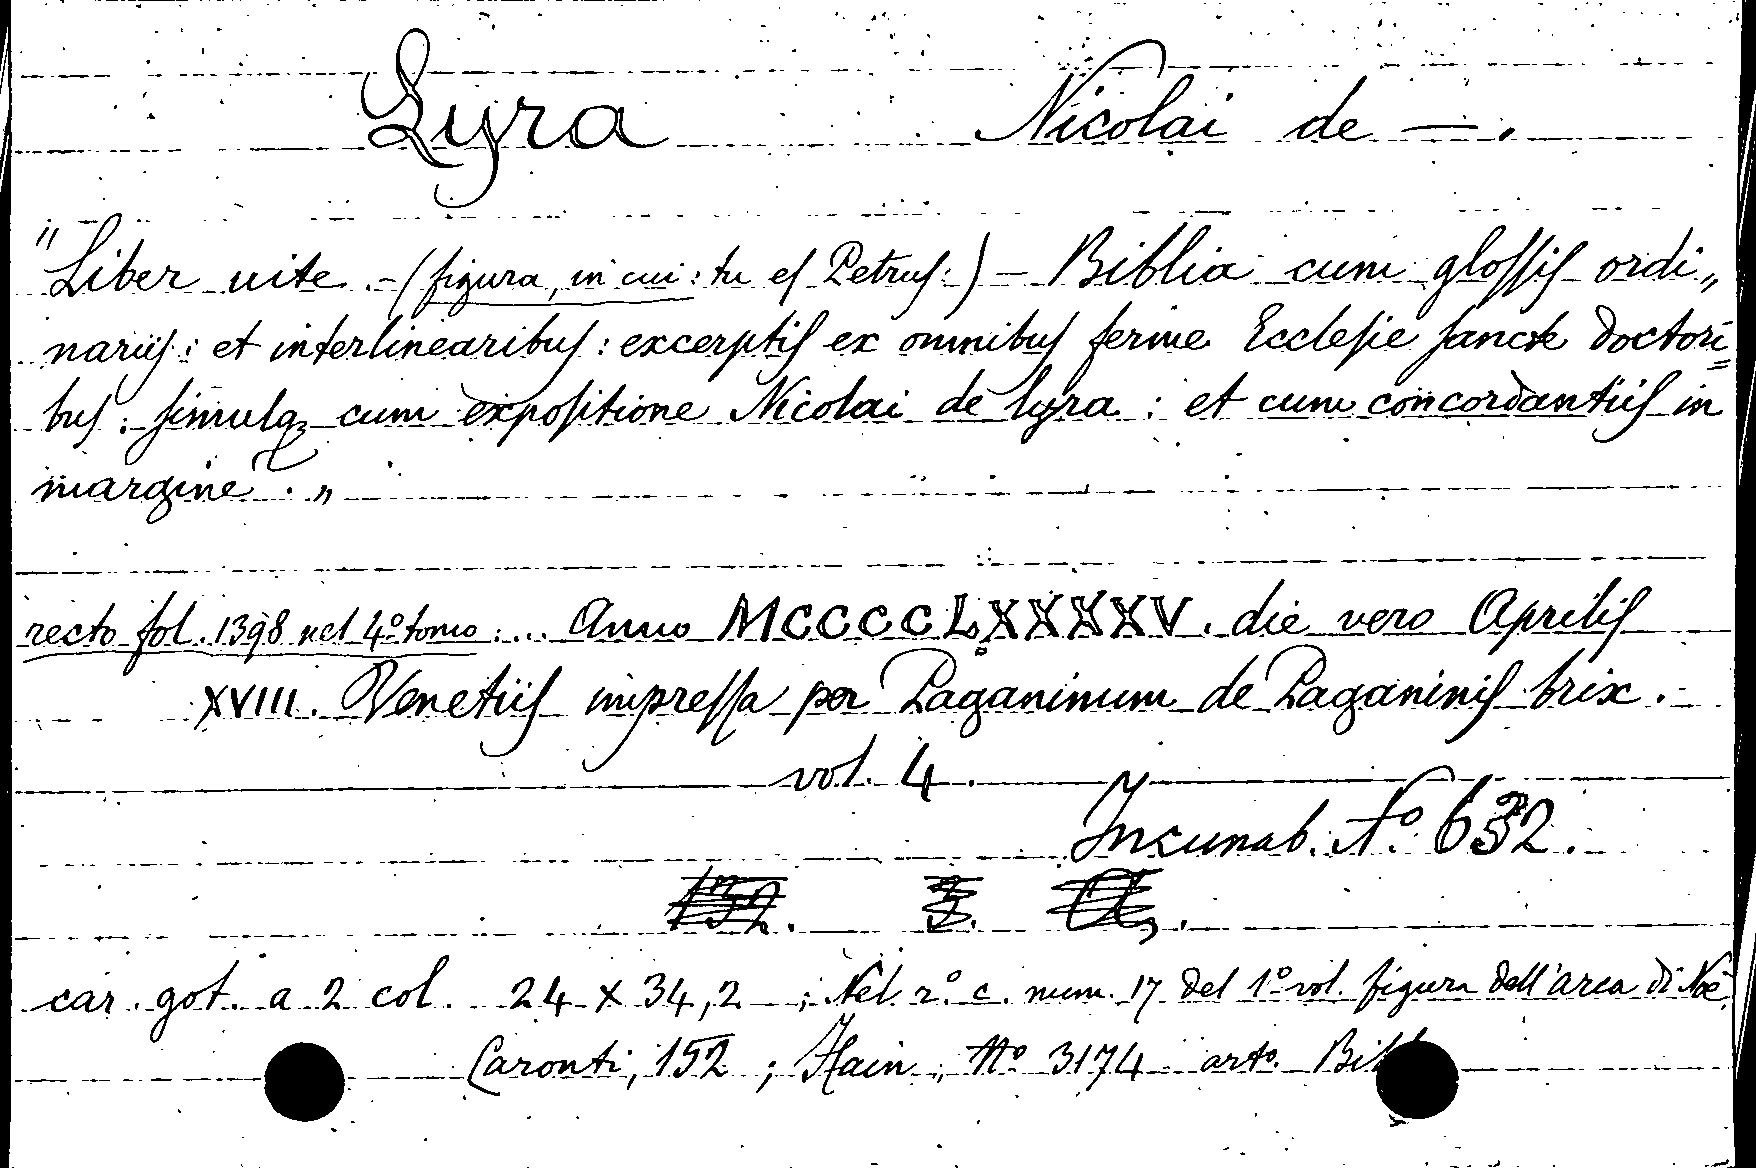 Lyra Nicolai de —.
"Liber uite. - (figura, in cui: tu eſ Petruſ:) - Biblia cum gloſſiſ ordi„
nariiſ: et interlinearibuſ: excerptiſ ex omnibuſ ferme Eccleſie ſancte doctori=
buſ: ſimulqꝫ cum expoſitione Nicolai de lyra: et cum concordantiiſ in
margine. „
recto fol. 1398 nel 4º tomo: ... Anno MCCCCLXXXXV. die vero Apriliſ
XVIII. Venetiiſ impreſſa per Paganinum de Paganiniſ brix.
vol. 4.
Incunab. Nº 632.
152. 3.
car. got. a 2 col. 24 x 34,2 ; Nel rº c. num. 17 del 1º vol. figura dell'arca di Noè.
Caronti, 152 ; Hain, Nº 3174 artº. Bibl